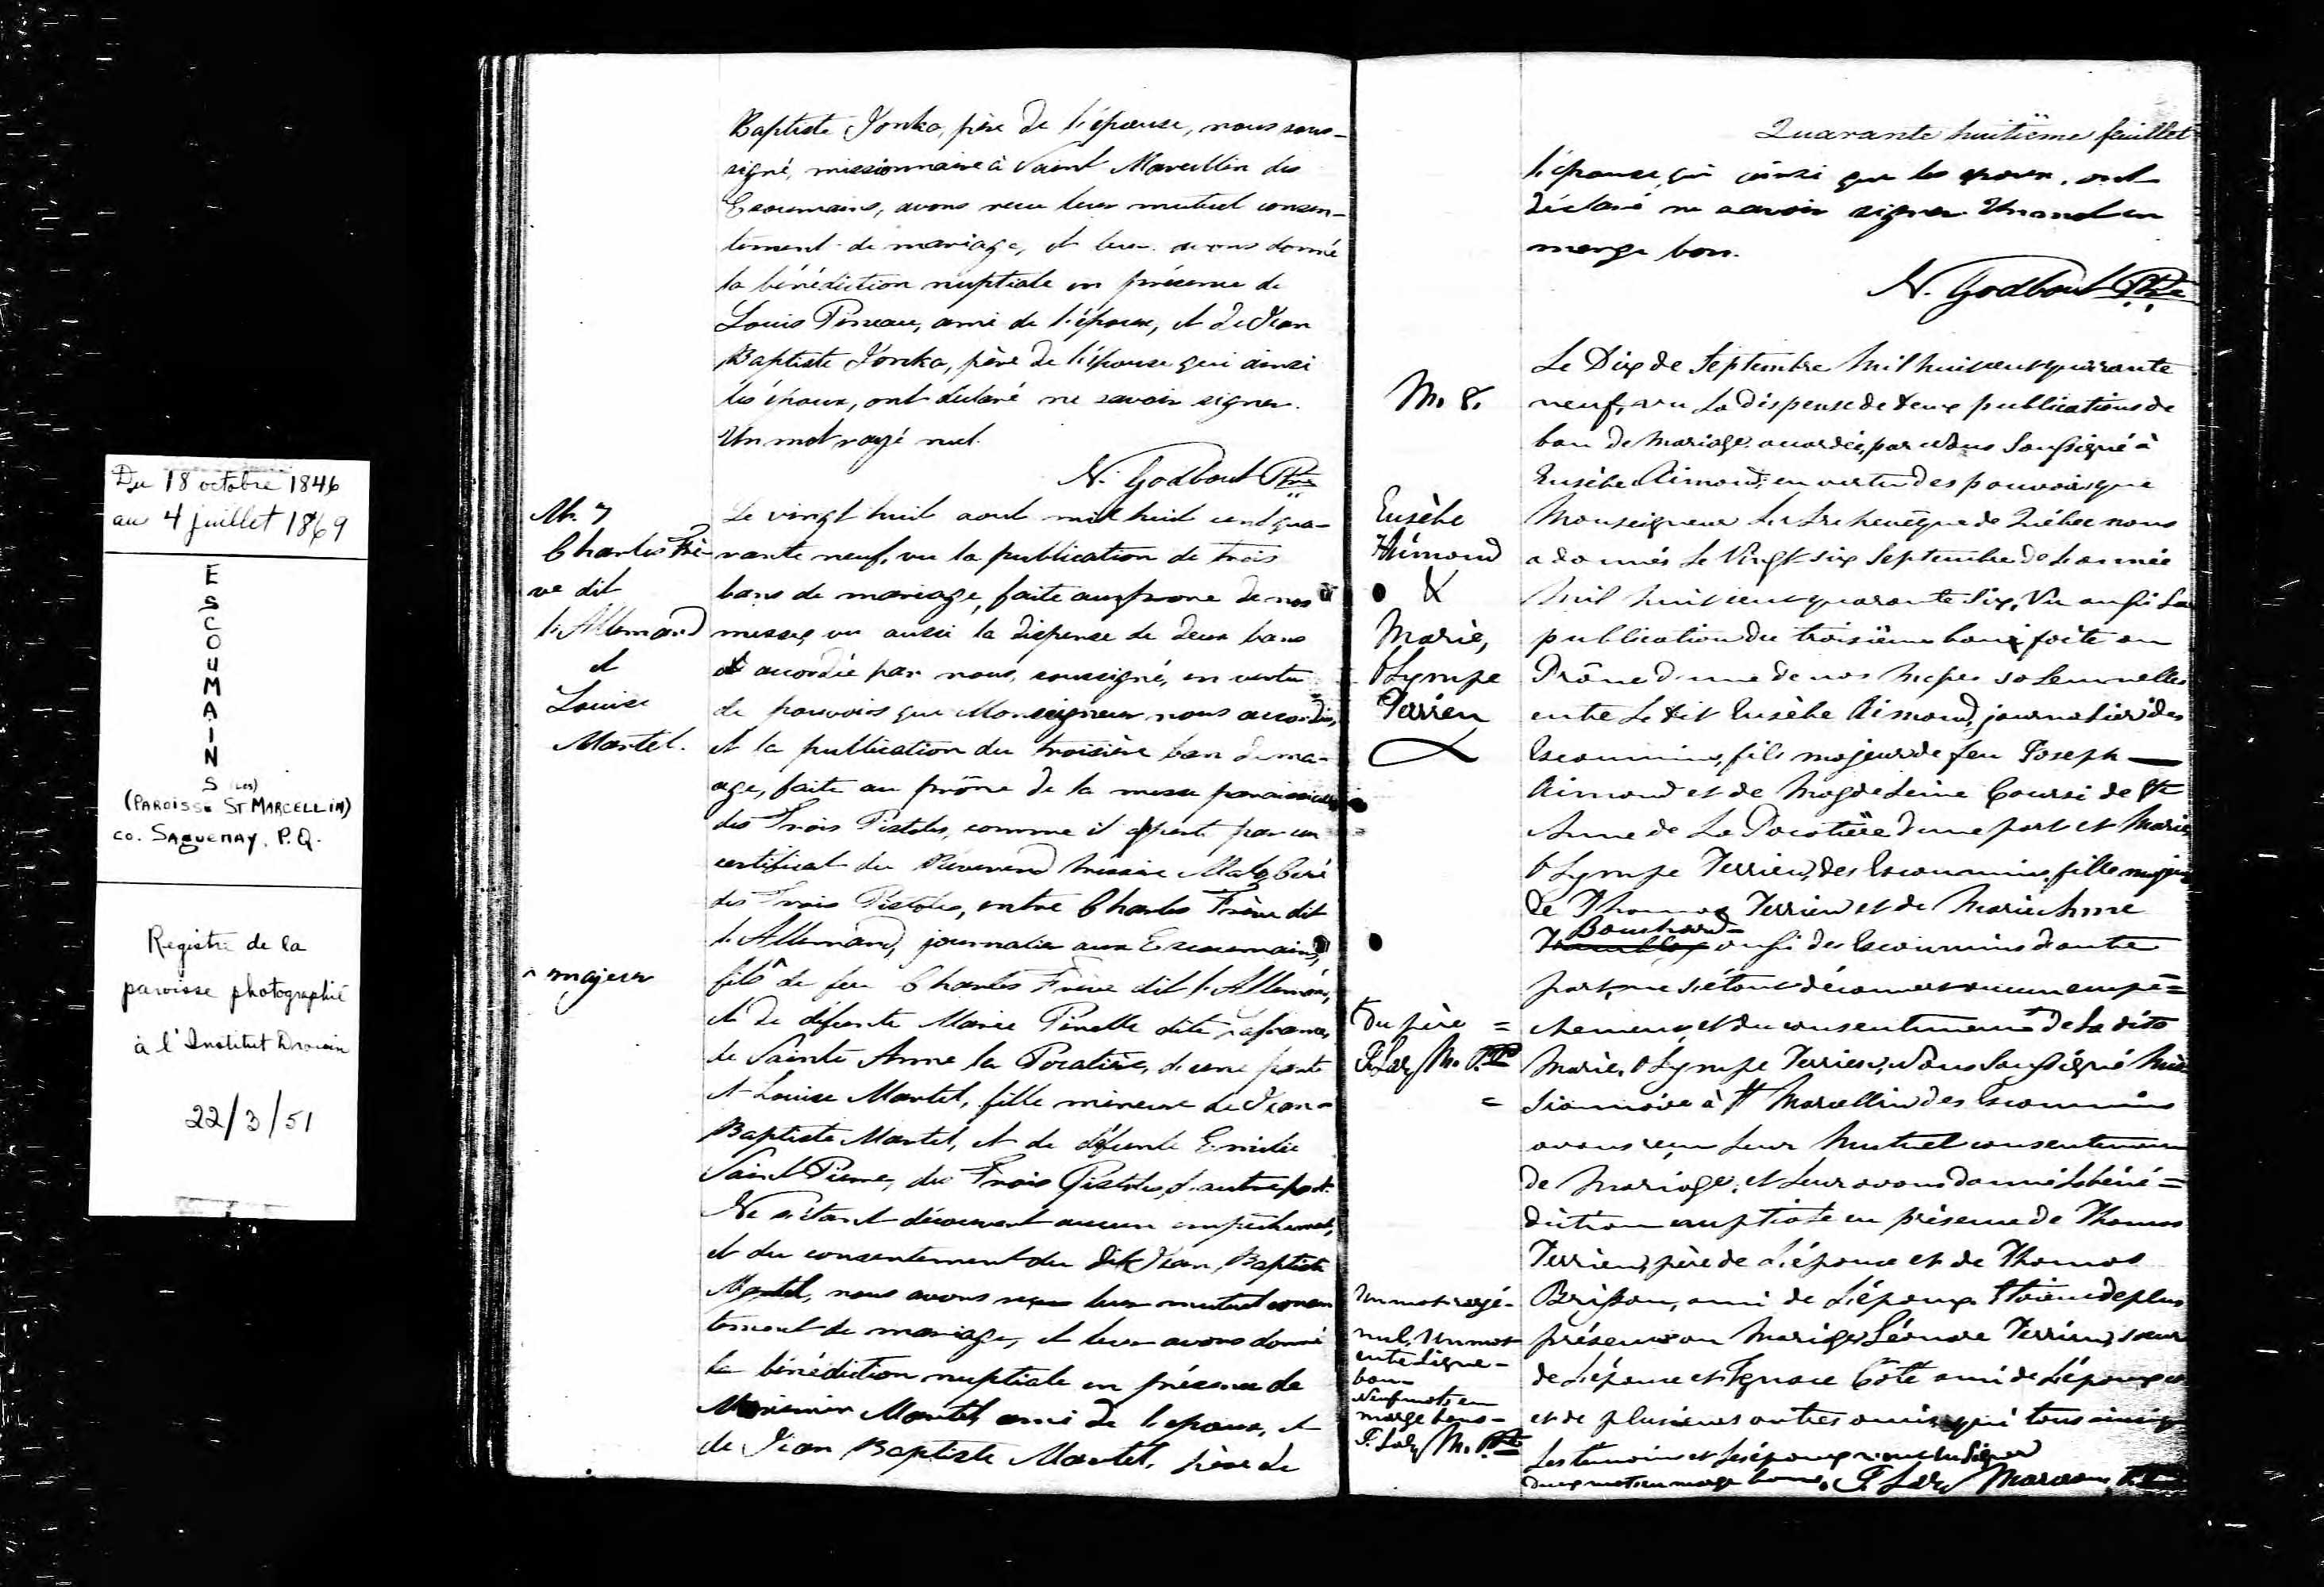 Du 18 octobre 1846
au 4 juillet 1869
E
S
C
O
U
M
A
I
N
S (Les)
(PAROISSE ST MARCELLIN)
co. SAGUENAY. P.Q.
Registre de la
paroisse photographié
à l'Institut Drouin
22/3/51
Baptiste père de l'épouse, nous sous-
signé, missionnaire à Saint Marcellin des
Escoumains, avons reçu leur mutuel consen-
tement de mariage, et leur avons donné
la bénédiction nuptiale en présence de
Louis Pineau, ami de l'époux, et de Jean
Baptiste père de l'épouse qui ainsi
les époux, ont déclaré ne savoir signer.
Un mot rayé nul.
N. Godbout Ptre
M. 7
Charles Frè-
ve dit
l'Allemand
et
Louise
Martel.
Le vingt huit aout mil huit cent qua-
rante neuf, vu la publication de trois
bans de mariage, faite au prone de nos
messes, vu aussi la dispense de deux bans
accordée par nous, soussigné, en vertu
de pouvoirs que Monseigneur nous
et la publication du troisième ban de ma-
age, faite au prône de la messe paroissiale
des Trois Pistoles, comme il appert par un
certificat du Révérend Messire Curé
des Trois Pistoles, entre Charles Frève dit
l'Allemand, journalier aux Escoumains,
^ majeur
fils^ de feu Charles Frève dit l'Allemand,
et de défunte Marie Pinelle dite Lafrance,
de Sainte Anne la Pocatière, d'une part
et Louise Martel, fille mineure de Jean-
Baptiste Martel, et de défunte Emilie
Saint Pierre, des Trois Pistoles, d'autre part.
Ne s'étant découvert aucun empêchement,
et du consentement du dit Jean Baptiste
Martel, nous avons reçu leur mutuel consen
tement de mariage, et leur avons donné
la bénédiction nuptiale en présence de
Martel, ami de l'epoux, et
de Jean Baptiste Martel, père de
Quarante huitième feuillet
l'épouse, qui ainsi que les époux, ont
déclaré ne savoir signer. Un mot en
marge bon.
N. Godbout Ptre
M. 8.
Eusèbe
Aimond
&
Marie,
Olympe
Terrien
Le Dix de Septembre Mil huit cent quarante
neuf, vu La dispense de deux publications de
ban de Mariage accordée, par Nous Soussigné à
Eusèbe Aimond, en vertu des pouvoirs que
Monseigneur L'Archevêque de Québec nous
a donnés Le Vingt-six Septembre de L'année
Mil huit cent quarante Six, Vu aussi La
publication du troisième ban faite au
Prône d'une de nos Messes solennelles
entre Le dit Eusèbe Aimond, journalier des
Escoumins, fils majeur de feu Joseph
Aimond et de Magdeleine de Ste
Anne de La Pocatière d'une part et Marie
Olympe Terrien, des Escoumins, fille majeure
de Thomas Terrien et de Marie Anne
Bouchard
Tremblay aussi des Escoumins d'autre
part, ne s'étant découvert aucun empê=
chement, et du consentement de La dite
Du père =
Marie, Olympe Terrien, Nous Soussigné Mis
sionnaire à St Marcellin des Escoumins
avons reçu Leur Mutuel consentement
de Mariage, et Leur avons donné La béné=
diction nuptiale en présence de Thomas
Terrien, père de L'épouse et de Thomas
Brisson, ami de L'époux Etaient de plus
présents au Mariage Léonore Terrien, sœur
de L'épouse et Ignace Coté ami de L'époux
et de plusieurs autres amis, qui tous ainsi que
Les témoins et Les époux n'ont su Signer
deux mots en marge bons.
Un mot rayé
nul, Un mot
entreligne
bon
Neuf mots en
marge bons